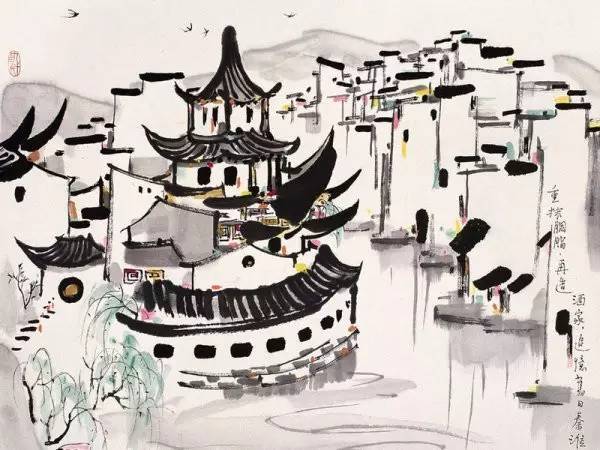 重胭脂、再造
酒家、追憶舊日秦淮